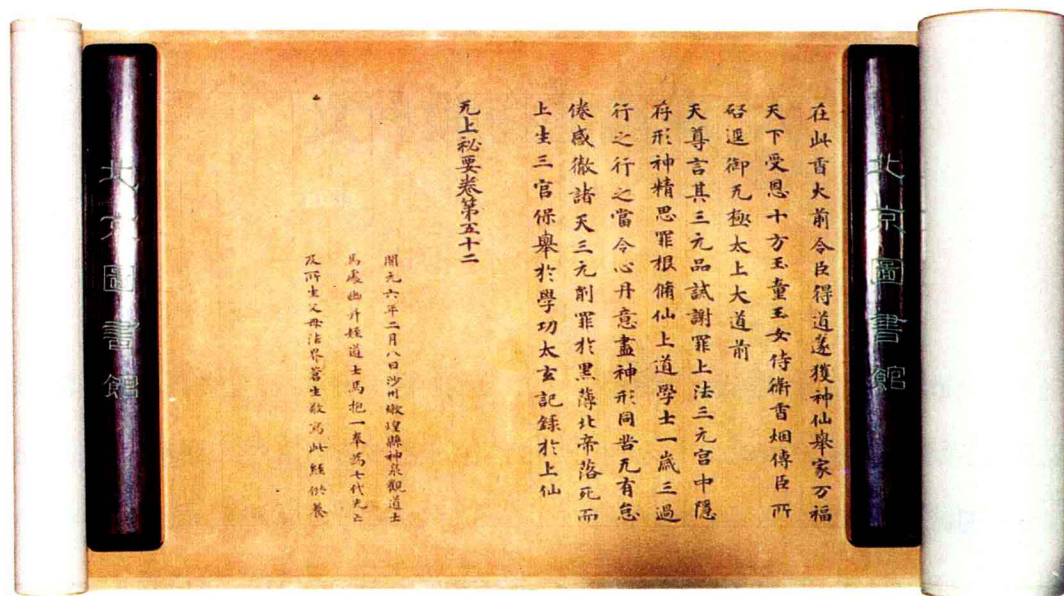 在此香火前令臣得道遂獲神仙舉家万福
天下受恩十方玉童玉女侍衛香烟傳臣所
啓逕御无極太上大道前
天尊言其三元品試謝罪上法三元宫中隱
存形神精思罪根脩仙上道學士一歲三過
行之行之當令心丹意盡神形同苦无有怠
倦感徹諸天三元削罪於黑薄北帝落死而
上生三官保舉於學功太玄記録於上仙
无上祕要卷第五十二
開元六年二月八日沙州燉煌縣神泉觀道士
馬處幽并姪道士馬抱一奉爲七代先亡
及所生父母法界蒼生敬寫此經供養
北京圖書館
北京圖書館